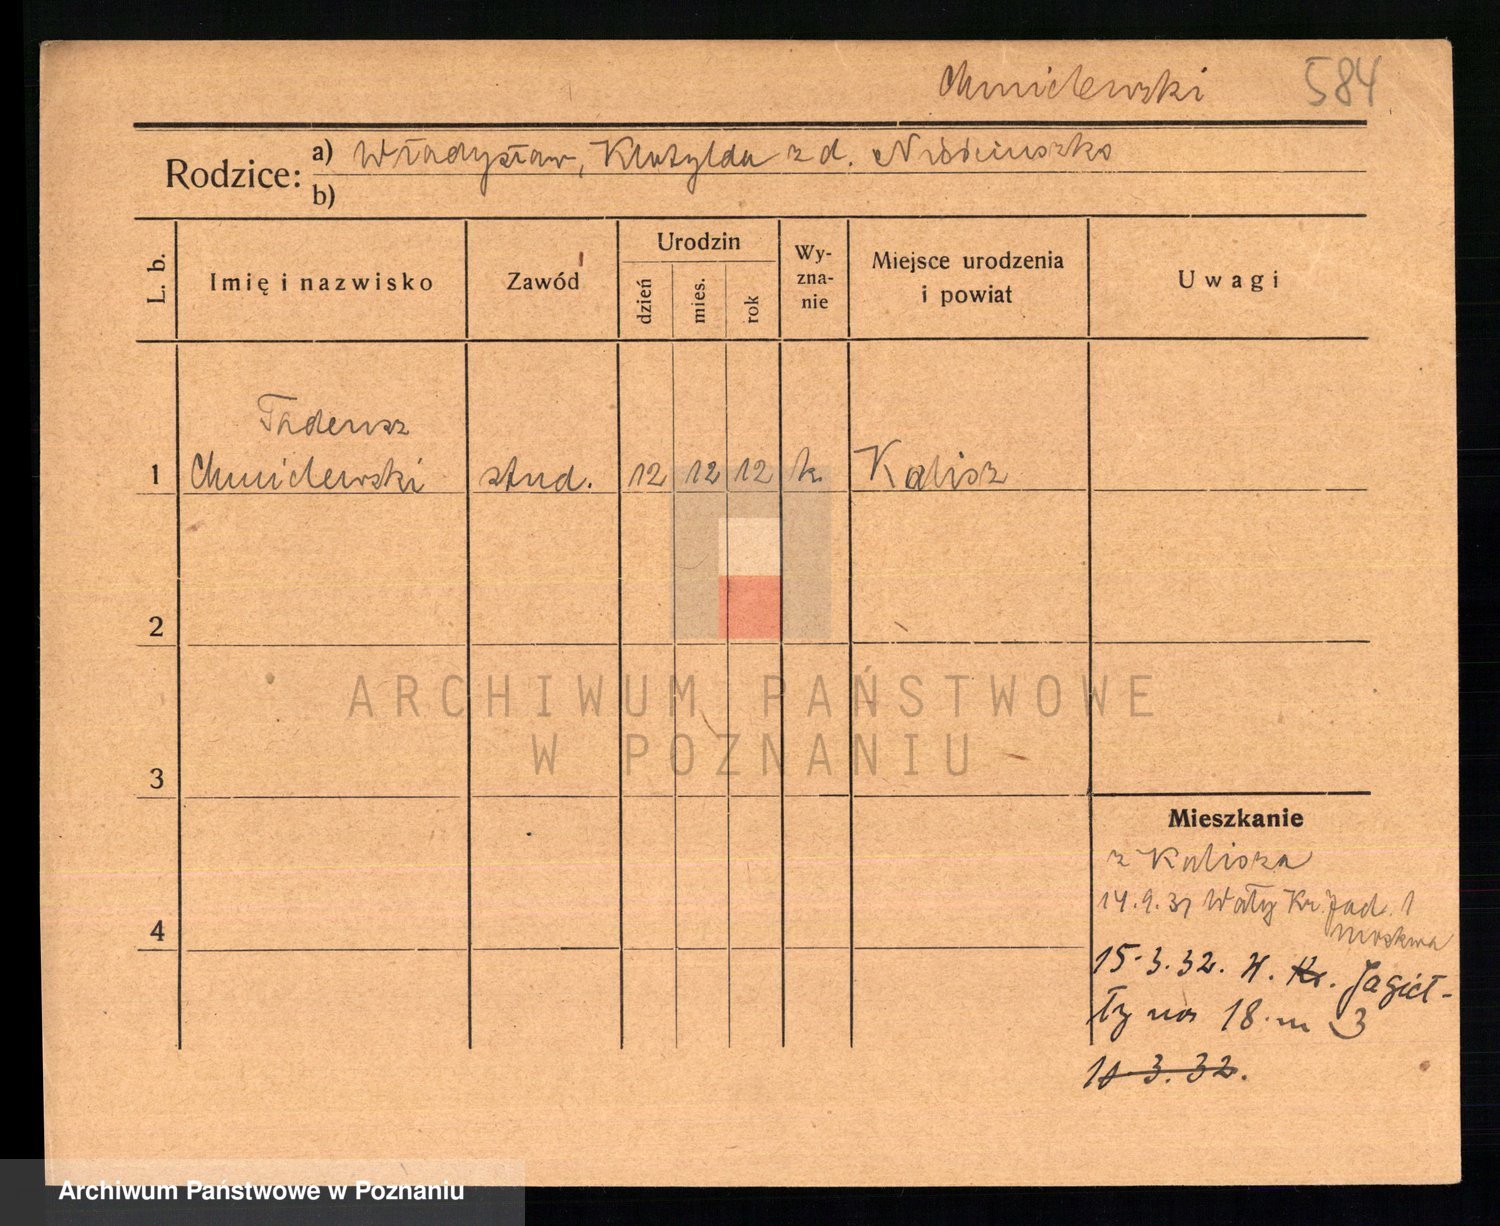 Chmielewski 584
Rodzice: a) Władysław, Klotylda z d.
b)
L. b.
Imię i nazwisko
Zawód
Urodzin
dzień
mies.
rok
Wy-
zna-
nie
Miejsce urodzenia
i powiat
Uwagi
Tadeusz
1 Chmielewski stud. 12 12 12 k Kalisz
2
3
4
Mieszkanie
z Kalisza
14.9.31 Wały Kr. Jad. 1
15.3.32. Kr. Jagieł-
ły no 18. m 3
3.32.
ARCHIWUM PAŃSTWOWE
W POZNANIU
Archiwum Państwowe w Poznaniu